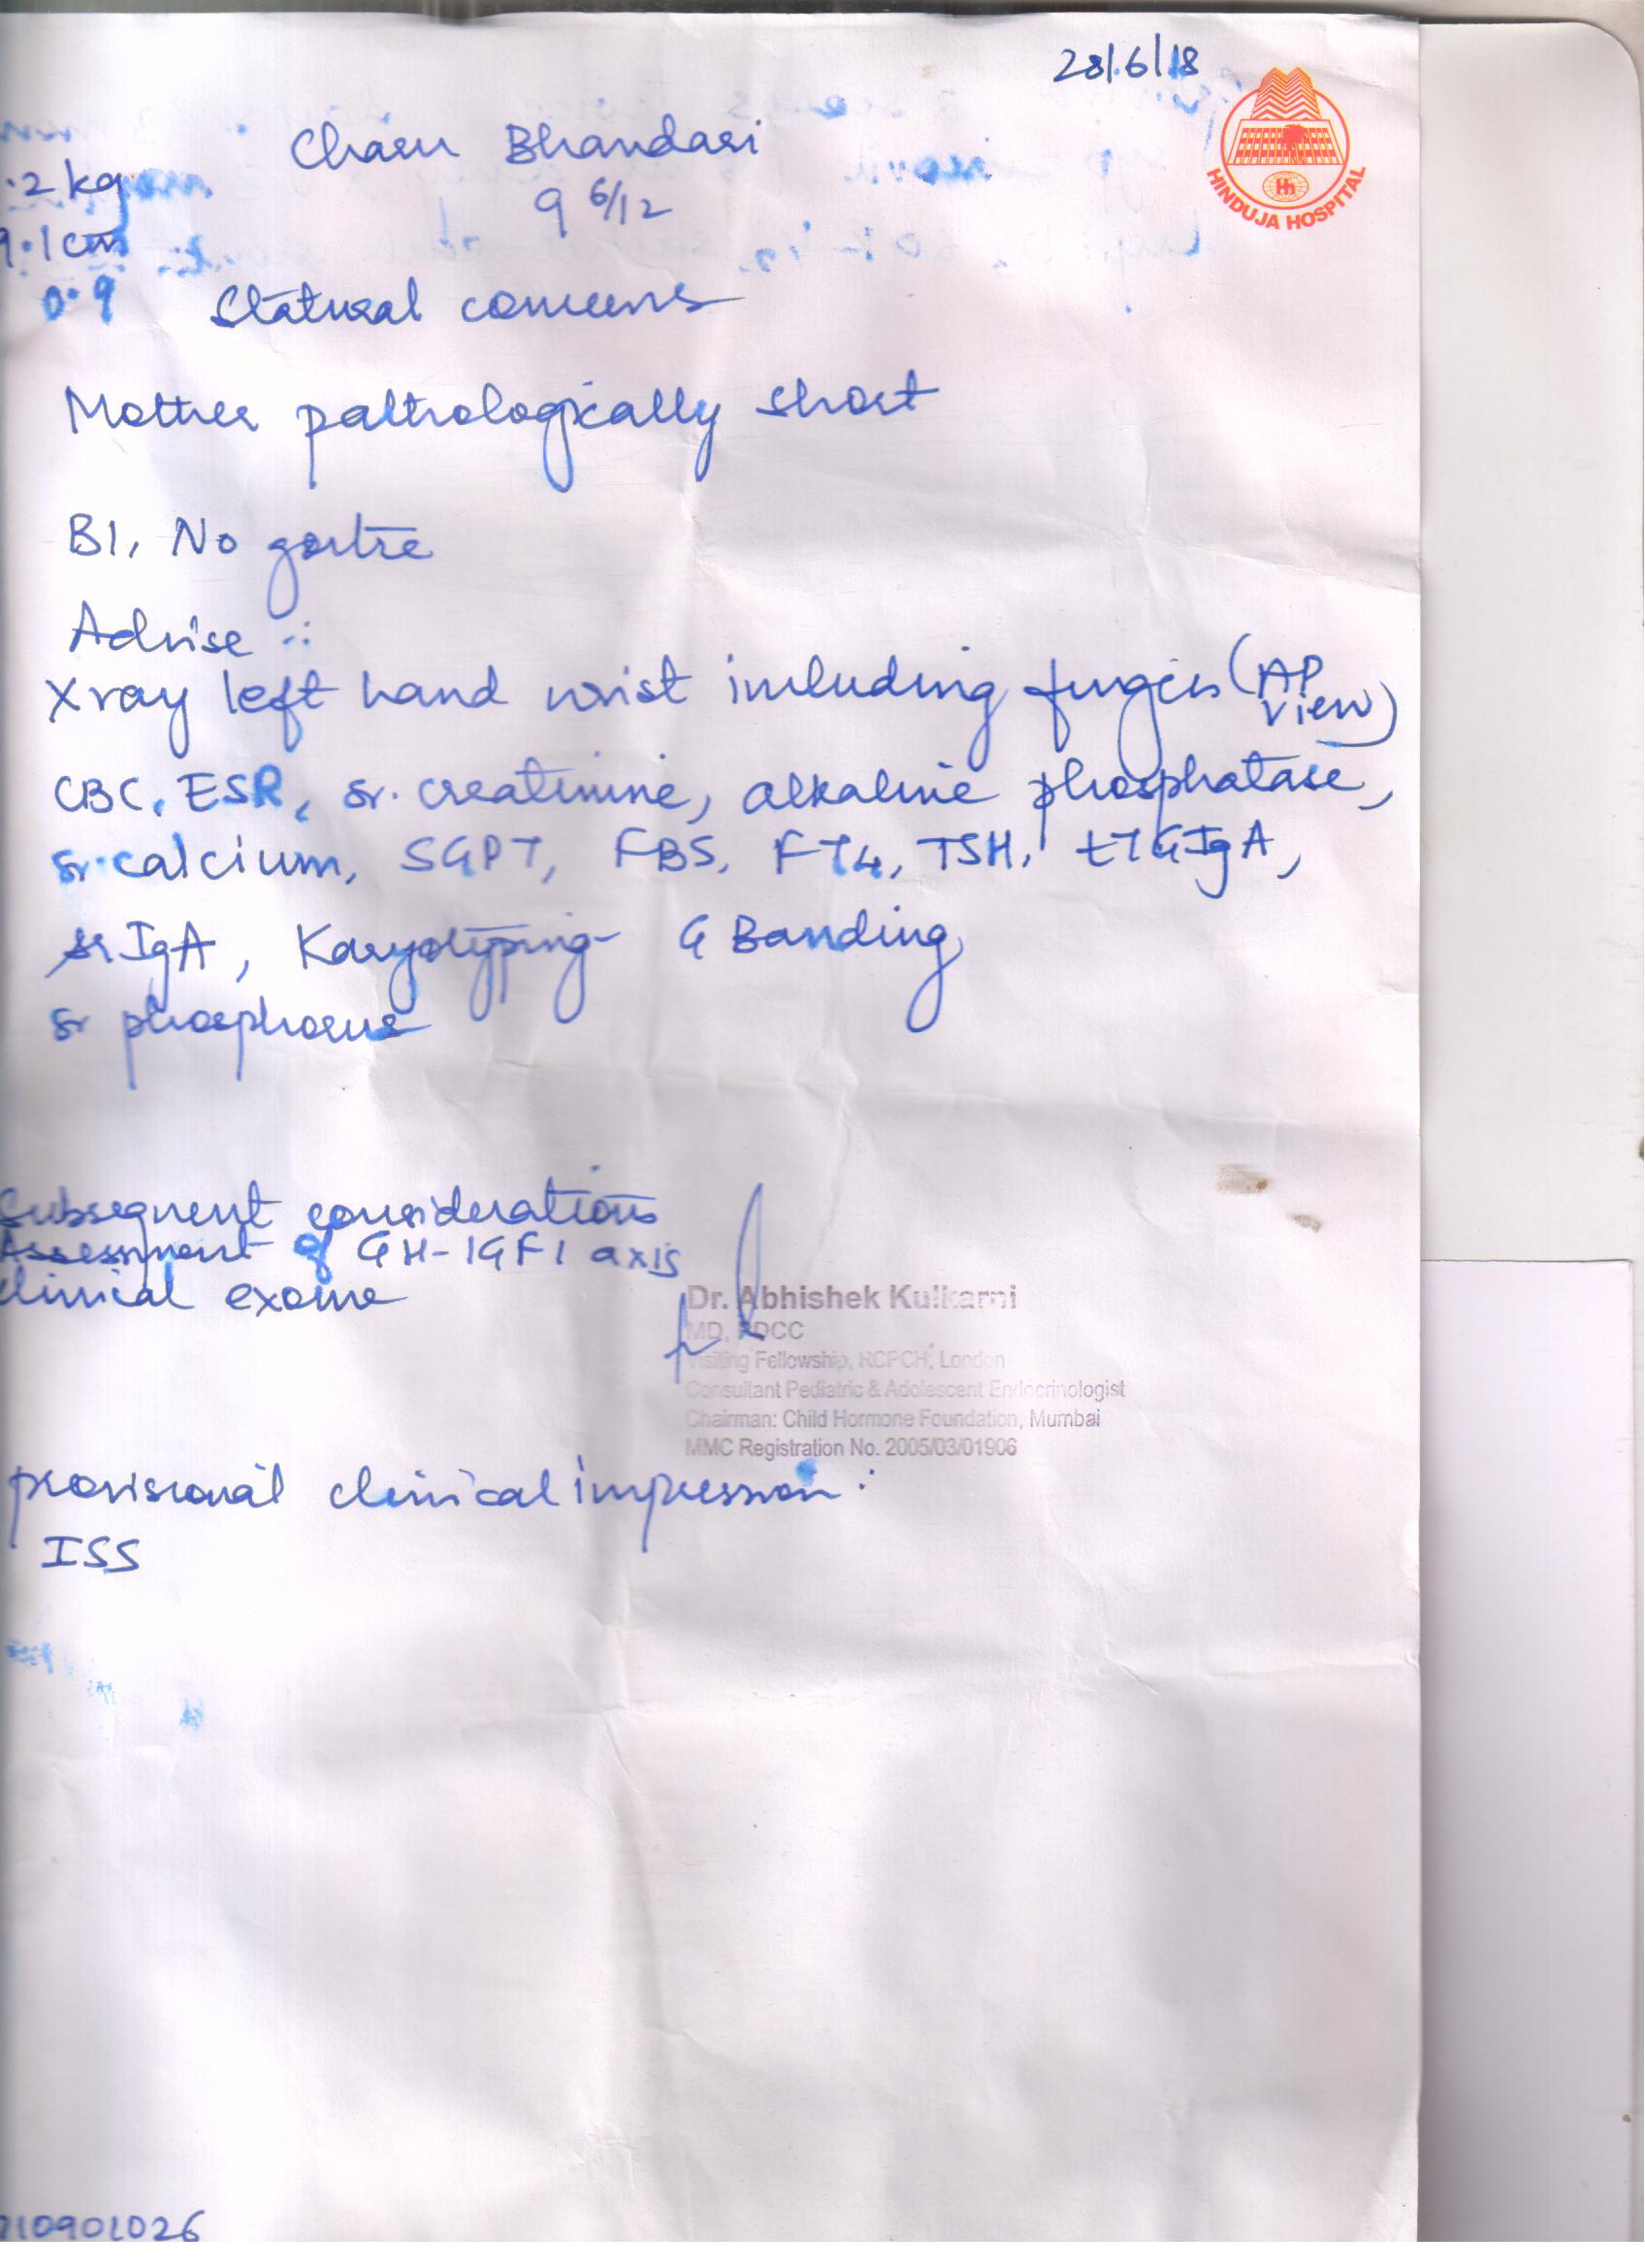 28/6/18
HINDUJA HOSPITAL
Charu Bhandari
9 6/12
.2 kg
9.1cm
0.9
Statural concerns
Mother pathologically short
B1, No goitre
Advise :
Xray left hand wrist including fingers (AP view)
CBC, ESR, sr. creatinine, alkaline phosphatase,
sr. calcium, SGPT, FBS, FT4, TSH, tTGIgA,
sr IgA, Karyotyping G Banding,
sr phosphorus
Subsequent considerations
Assessment of GH-IGF1 axis
clinical exome
Dr. Abhishek Kulkarni
MD, PDCC
Visiting Fellowship, RCPCH, London
Consultant Pediatric & Adolescent Endocrinologist
Chairman: Child Hormone Foundation, Mumbai
MMC Registration No. 2005/03/01906
provisional clinical impression :
ISS
10901026